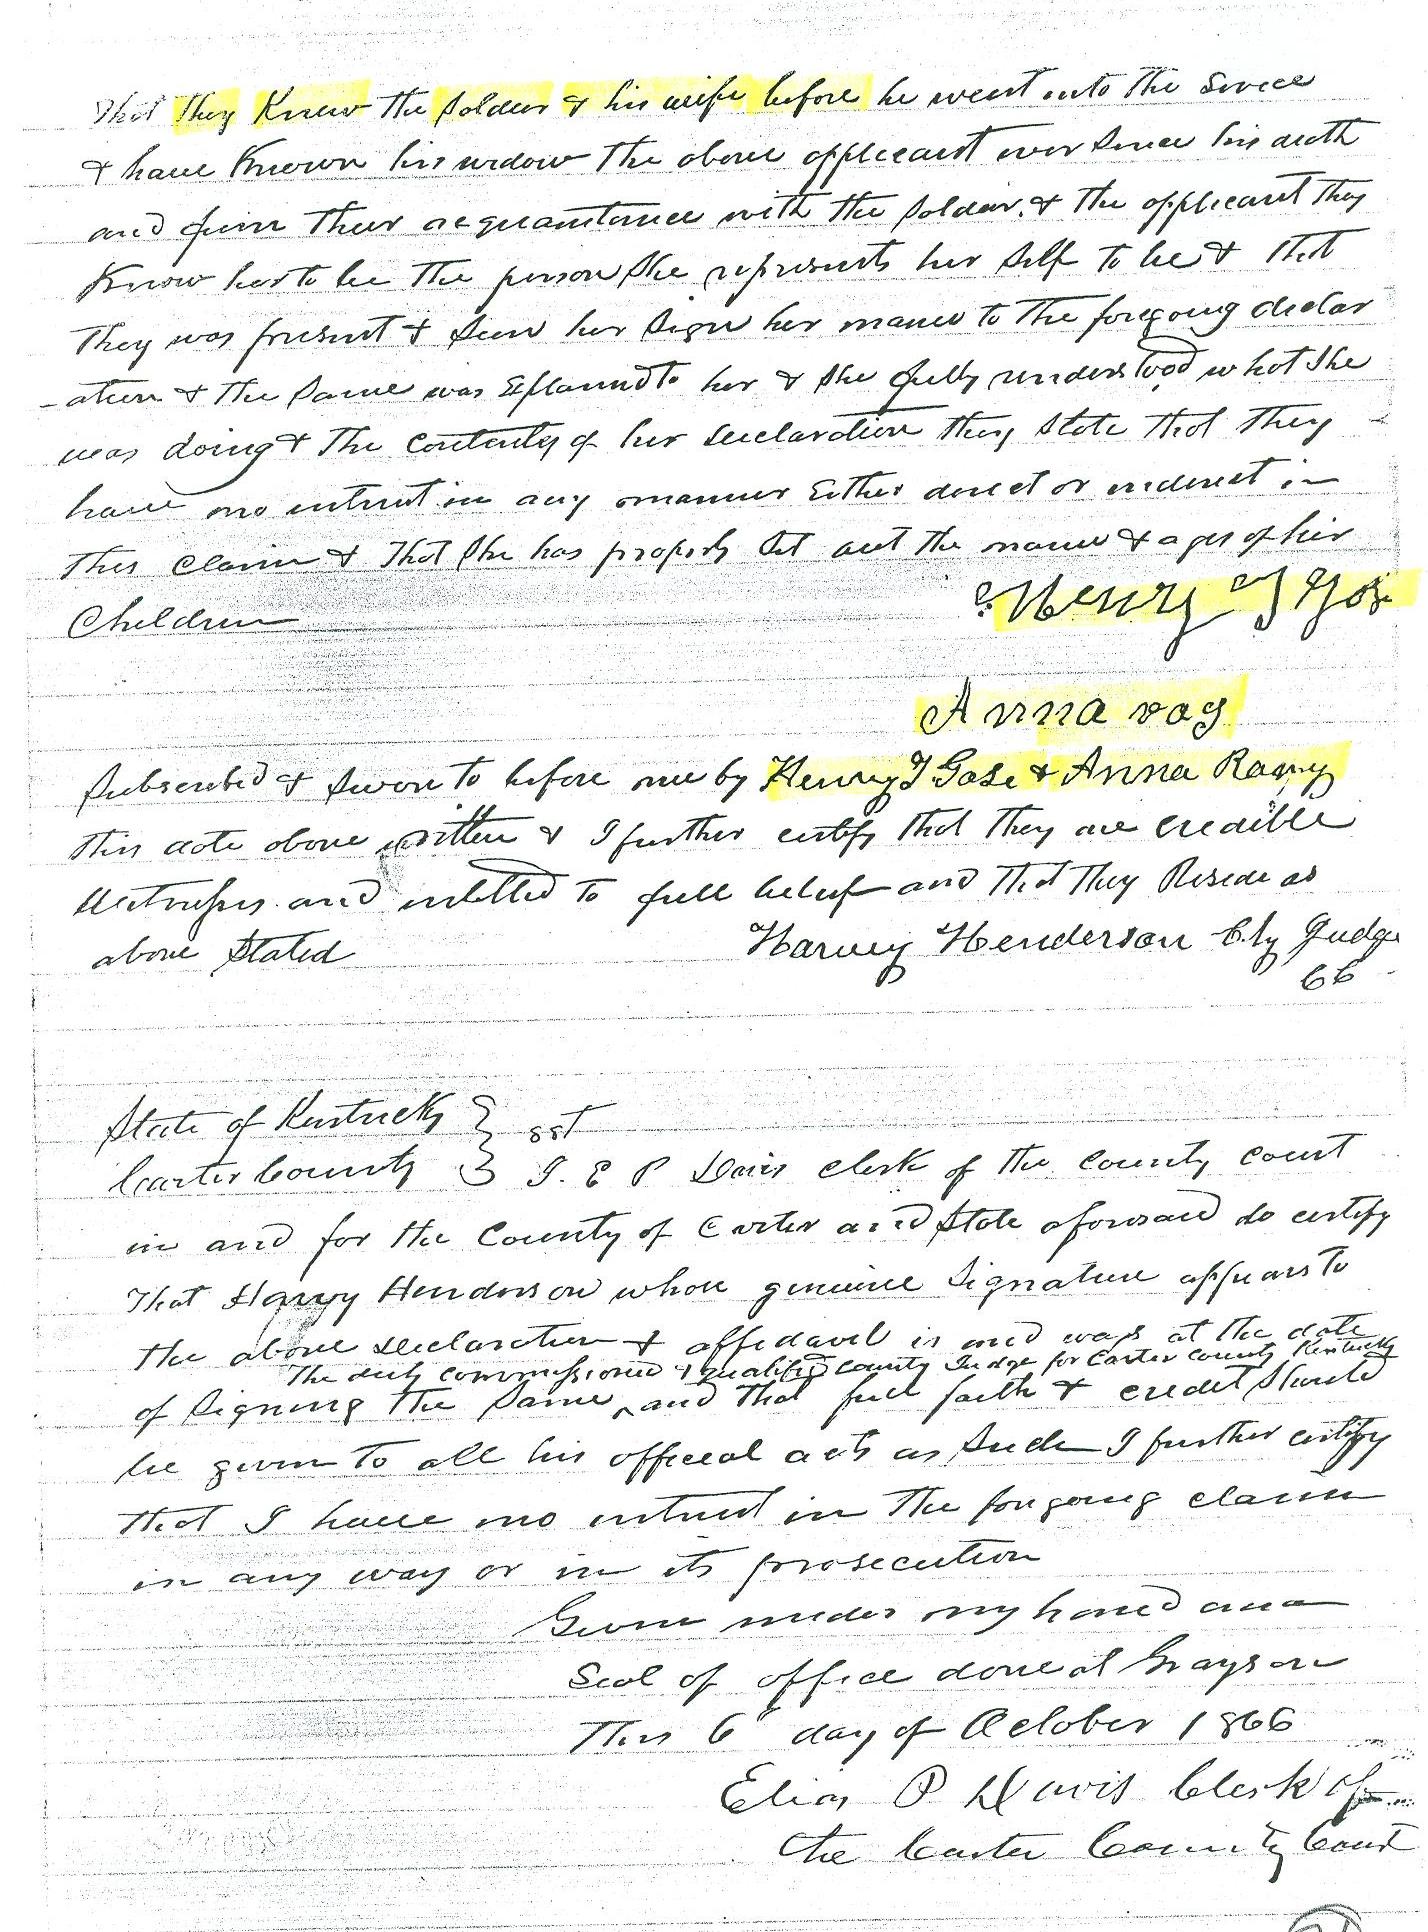 that they Knew the Soldier & his wife before he went into the Service
& have Known his widow the above applicant ever Since his death
and from their acquaintance with the Soldier & the applicant they
Know her to be the person She represents her Self to be & that
they was present & Seen her Sign her name to the foregoing declar
-ation & the Same was Explained to her & She fully understood what She
was doing & the Contents of her declaration they State that they
have no intrest in any manner Either direct or indirect in
this Claim & that She has properly Set out the name & ages of her
Children
Henry J Gose
Anna rag
Subscribed & Sworn to before me by Henry J Gose & Anna Ramy
this date above written & I further certify that they are credible
Witnesses and intitled to full beleif and that they Reside as
above Stated
Harvey Henderson Cty Judge
CC
State of Kentucky } sst
Carter County } I. E P Davis Clerk of the County Court
in and for the County of Carter and State aforesaid do certify
that Harvey Henderson whose genuine Signature appears to
the above declaration & affidavit is and was at the date
The duly commissioned & qualified County Judge for Carter County Kentucky
of Signing the Same ^ and that full faith & credit Should
be given to all his official acts as Such I further certify
that I have no intrest in the forgoing claim
in any way or in its prosecution
Given under my hand and
Seal of office done at Grayson
This 6" day of October 1866
Elias P Davis Clerk of
the Carter County Court